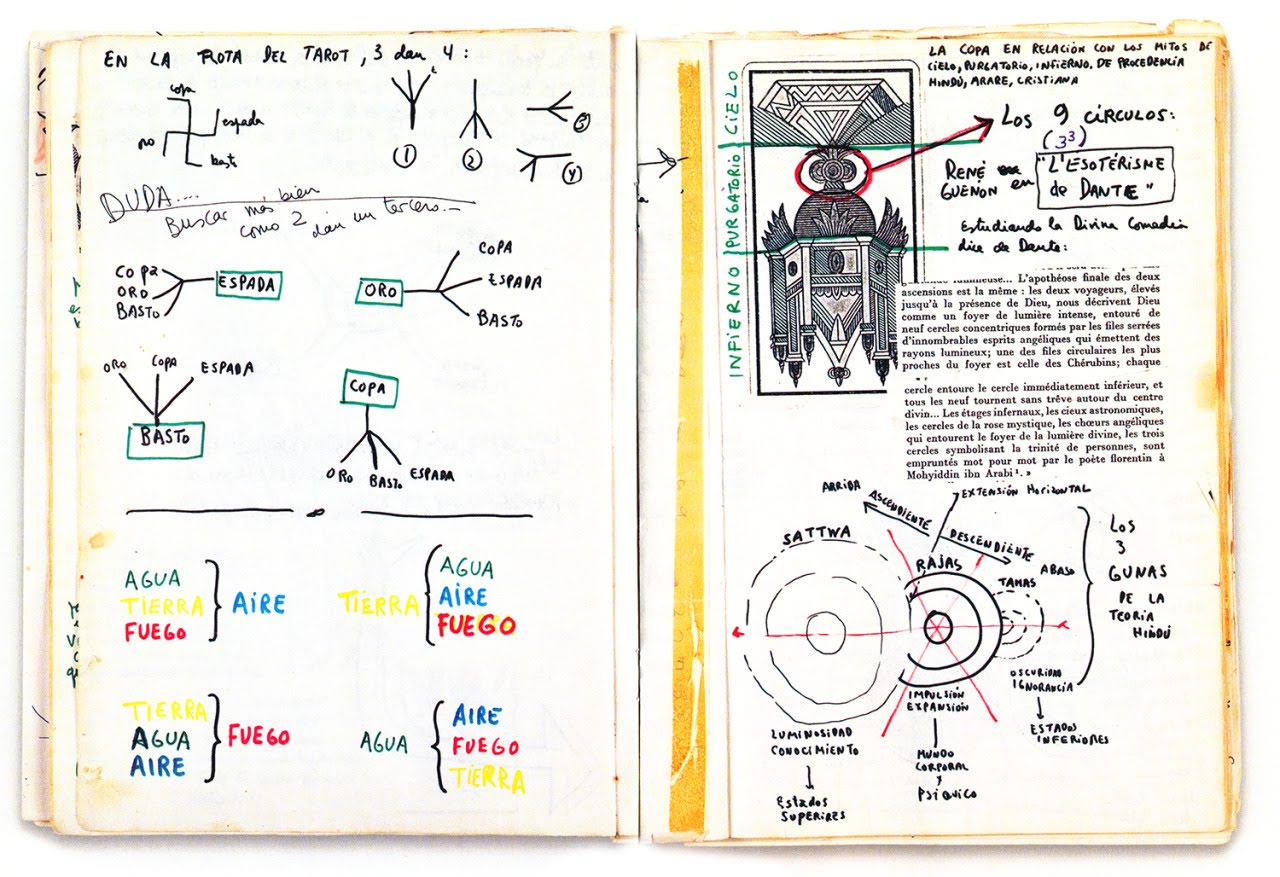 EN LA ROTA DEL TAROT, 3 dan 4:
copa
espada
oro
basto
1
2
3
4
DUDA....
Buscar más bien
como 2 dan un tercero.-
COPA
ORO
BASTO
ESPADA
ORO
COPA
ESPADA
BASTO
ORO COPA ESPADA
BASTO
COPA
ORO BASTO ESPADA
AGUA
TIERRA
FUEGO
AIRE
TIERRA
AGUA
AIRE
FUEGO
TIERRA
AGUA
AIRE
FUEGO
AGUA
AIRE
FUEGO
TIERRA
LA COPA EN RELACIÓN CON LOS MITOS DE
CIELO, PURGATORIO, INFIERNO. DE PROCEDENCIA
HINDÚ, ARABE, CRISTIANA
INFIERNO PURGATORIO CIELO
LOS 9 CÍRCULOS:
(3³)
RENÉ
GUENON en
"L'ESOTÉRISME
de DANTE"
Estudiando la Divina Comedia
dice de Dante:
lumineuse... L'apothéose finale des deux
ascensions est la même : les deux voyageurs, élevés
jusqu'à la présence de Dieu, nous décrivent Dieu
comme un foyer de lumière intense, entouré de
neuf cercles concentriques formés par les files serrées
d'innombrables esprits angéliques qui émettent des
rayons lumineux; une des files circulaires les plus
proches du foyer est celle des Chérubins; chaque
cercle entoure le cercle immédiatement inférieur, et
tous les neuf tournent sans trêve autour du centre
divin... Les étages infernaux, les cieux astronomiques,
les cercles de la rose mystique, les chœurs angéliques
qui entourent le foyer de la lumière divine, les trois
cercles symbolisant la trinité de personnes, sont
empruntés mot pour mot par le poète florentin à
Mohyiddin ibn Arabi¹. »
ARRIBA
ASCENDIENTE
EXTENSIÓN HORIZONTAL
DESCENDIENTE
ABAJO
SATTWA
RAJAS
TAMAS
LOS
3
GUNAS
DE LA
TEORÍA
HINDÚ
LUMINOSIDAD
CONOCIMIENTO
Estados
SUPERIRES
IMPULSIÓN
EXPANSIÓN
MUNDO
CORPORAL
Y
PSIQUICO
OSCURIDAD
IGNORANCIA
ESTADOS
INFERIORES